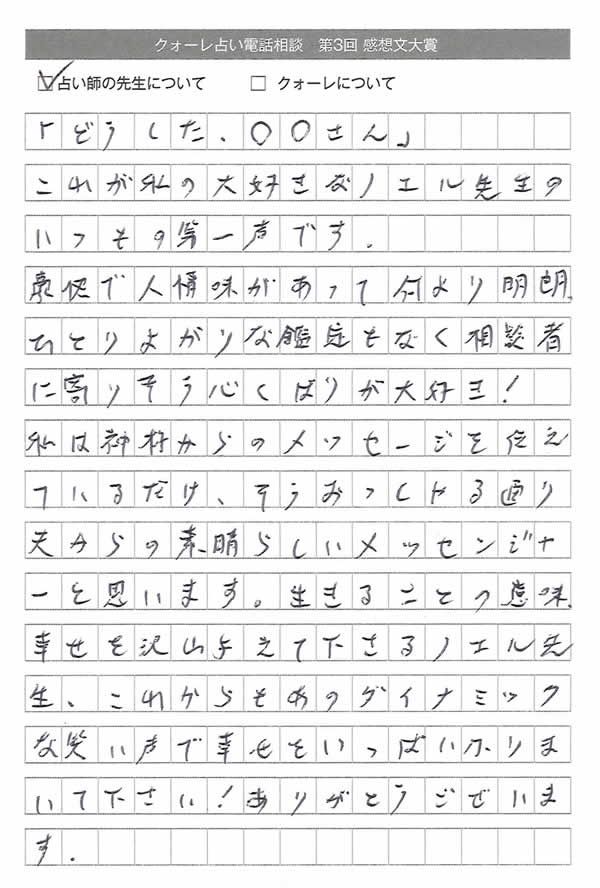 クォーレ占い電話相談 第3回 感想文大賞
☑占い師の先生について □ クォーレについて
「どうした、〇〇さん」
これが私の大好きなノエル先生の
いつもの第一声です。
豪快で人情味があって何より明朗、
ひとりよがりな鑑定もなく相談者
に寄りそう心くばりが大好き!
私は神様からのメッセージを伝え
ているだけ、そうおっしゃる通り
天からの素晴らしいメッセンジャ
ーと思います。生きることの意味、
幸せを沢山与えて下さるノエル先
生、これからもあのダイナミック
な笑い声で幸せをいっぱいふりま
いて下さい!ありがとうございま
す。